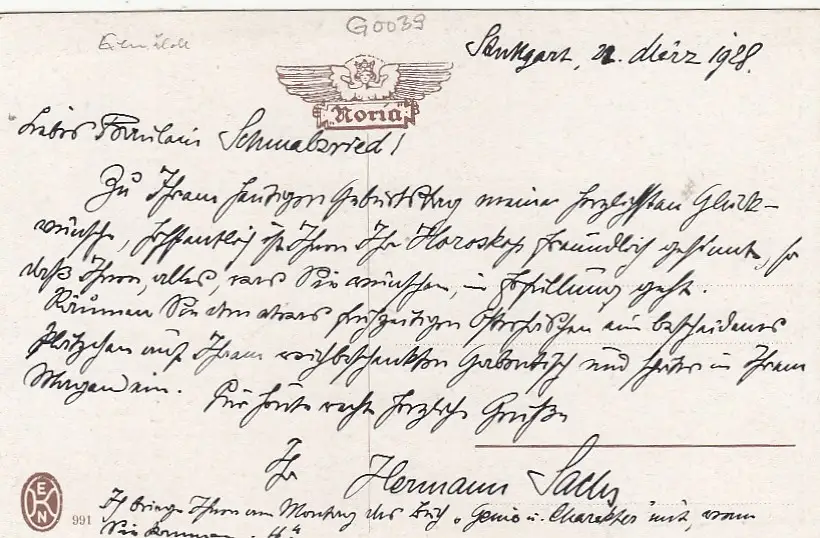 G0039
Stuttgart, 22. März 1928.
Noris
Liebes Fräulein Schmalzried!
Zu Ihrem heutigen Geburtstag meine herzlichsten Glück-
wünsche, hoffentlich ist Ihnen Ihr Horoskop freundlich gesinnt, so
daß Ihnen, alles, was Sie wünschen, in Erfüllung geht.
Räumen Sie dem etwas frühzeitigen Osterhäschen ein bescheidenes
Plätzchen auf Ihrem reichbeschenkten Gabentisch und später in Ihrem
Magen ein. Für heute recht herzliche Grüße
Ihr Hermann Sachs
EN
991
Ich bringe Ihnen am Montag das Buch „Genie u. Charakter" mit, wenn
Sie kommen.